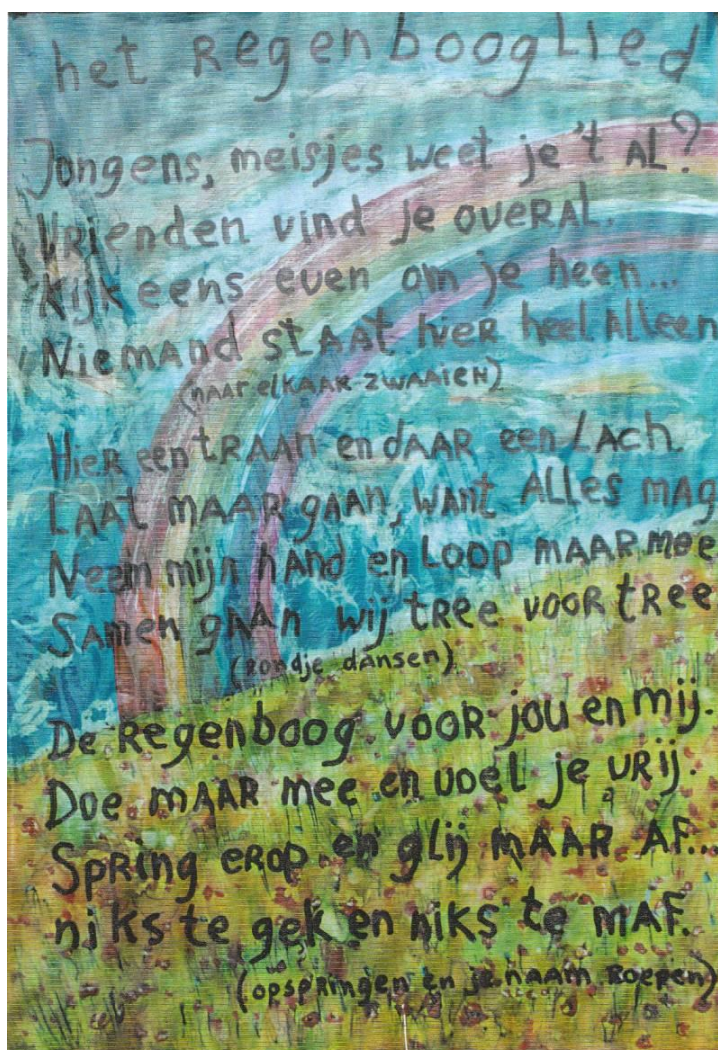 het Regenbooglied
Jongens, meisjes weet je 't AL?
Vrienden vind je overAL.
Kijk eens even om je heen...
Niemand stAAt hier heel Alleen
(naar elkaar zwaaien)
Hier een tRAAn en dAAR een Lach.
LAAt MAAR gaan, want Alles mag
Neem mijn hAnd en Loop MAAR mee
Samen gaan wij tree voor tree
(rondje dansen)
De Regenboog voor jou en mij.
Doe MAAR mee en voel je vrij.
Spring erop en glij MAAR Af...
niks te gek en niks te MAF.
(opspringen en je naam roepen)